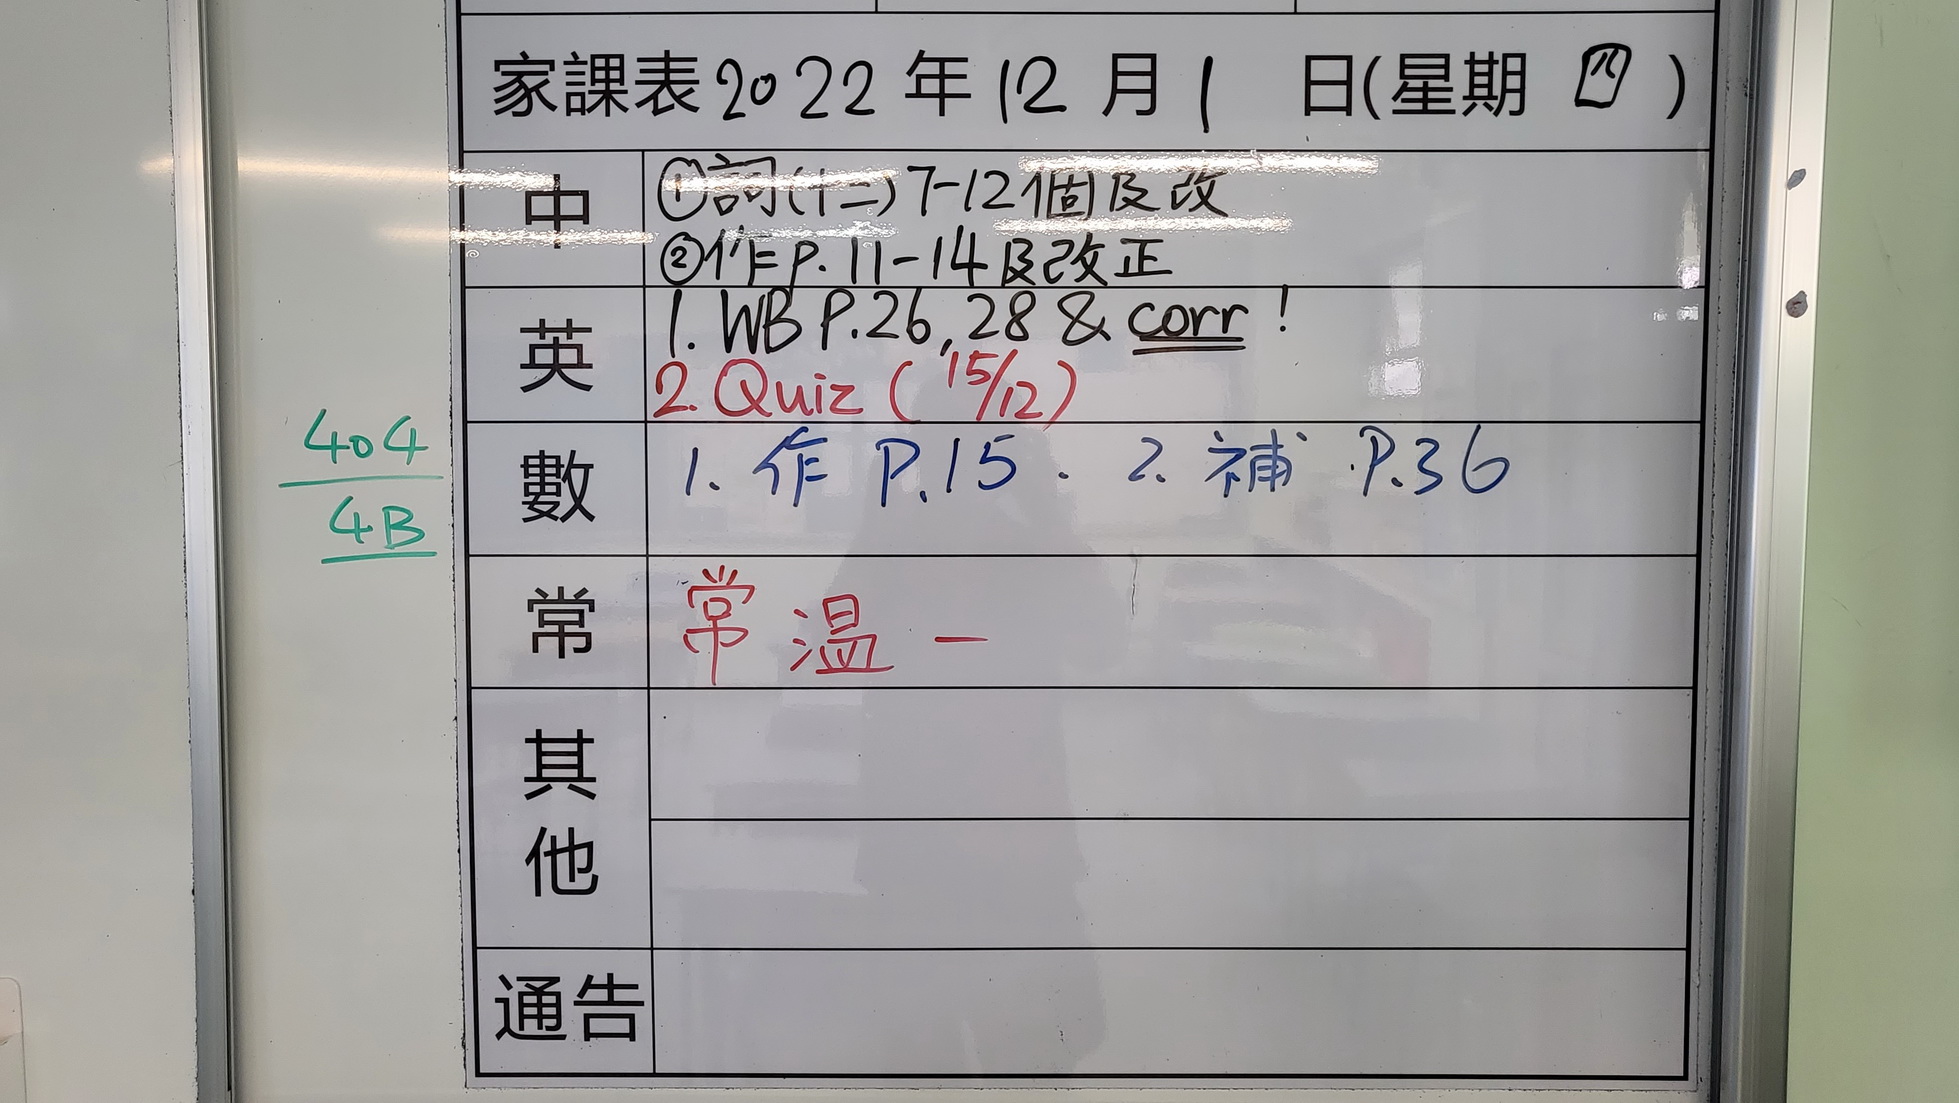 家課表2022年12月1日(星期四)
中
①詞(十二)7-12個及改
②作P.11-14及改正
英
1. WB P.26, 28 & corr!
2. Quiz (15/12)
404
4B
數
1. 作 P.15. 2. 補 P.36
常
常 温 一
其他
通告